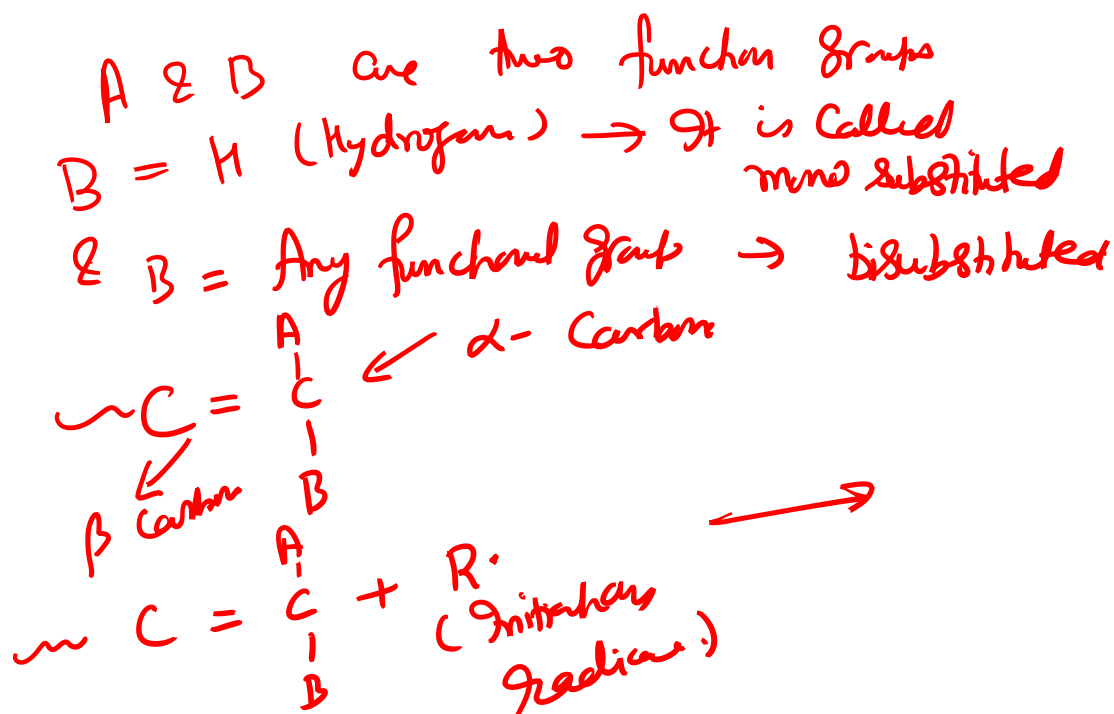 A & B are two function groups
B = H (Hydrogen) → It is called
mono substituted
& B = Any functional group → Disubstituted
A
α- Carbon
C = C
B
β Carbon
A
C = C + R·
(Initiators
B
radical)